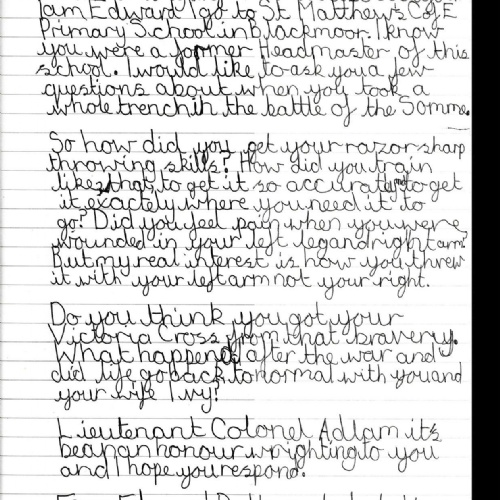 I am Edward I go to St Matthew's C of E
Primary School in Blackmoor. I know
you were a former Headmaster of this
school. I would like to ask you a few
questions about when you took a
whole trench in the battle of the Somme.
So how did you get your razor sharp
throwing skills? How did you train
like that, to get it so accurate to get
it exactely where you need it to
go? Did you feel pain when you were
wounded in your left leg and right arm?
But my real interest is how you threw
it with your left arm not your right.
Do you think you got your
Victoria Cross from that bravery.
What happend after the war and
did life go back to normal with you and
your wife Ivy?
Lieutenant Colonel Adlam its
bean an honour wrighting to you
and I hope you respond.